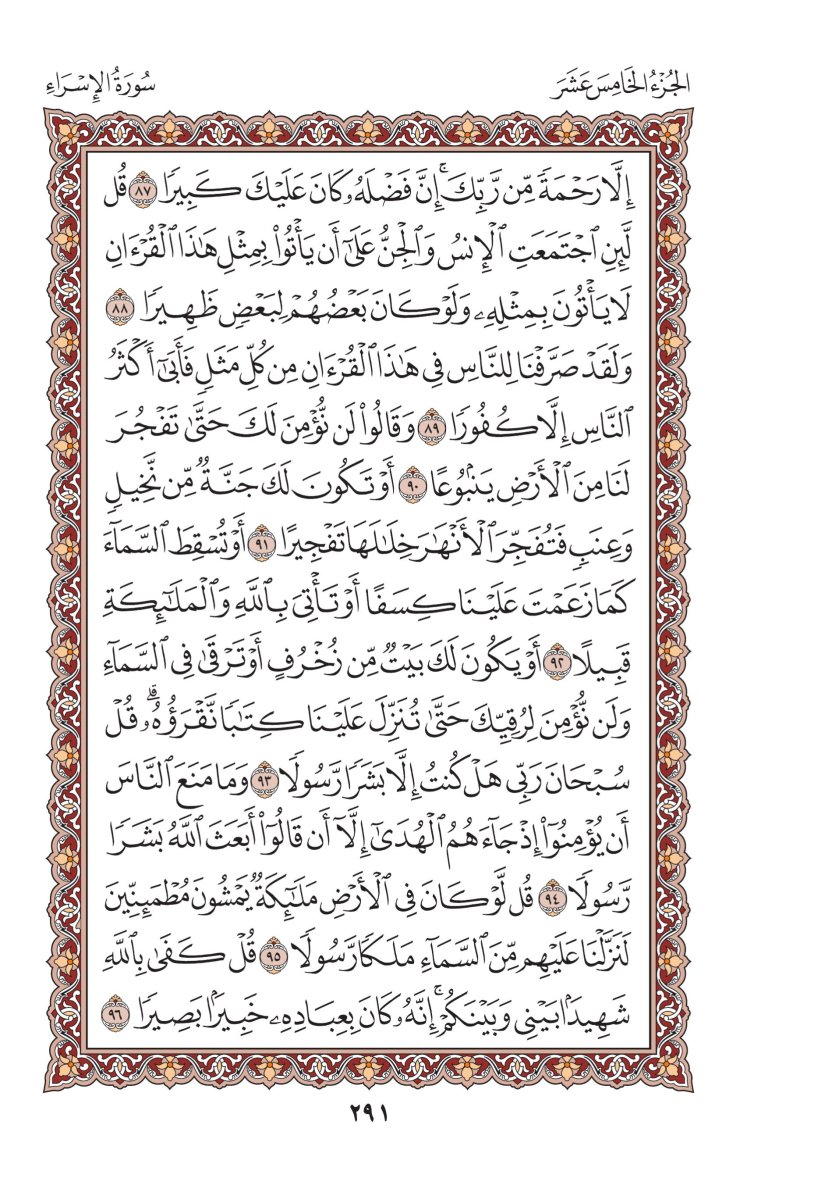 الجُزْءُ الخَامِسَ عَشَرَ
سُورَةُ الإِسْرَاءِ
إِلَّا رَحْمَةً مِّن رَّبِّكَۚ إِنَّ فَضْلَهُۥ كَانَ عَلَيْكَ كَبِيرٗا ٨٧ قُل
لَّئِنِ ٱجْتَمَعَتِ ٱلْإِنسُ وَٱلْجِنُّ عَلَىٰٓ أَن يَأْتُوا۟ بِمِثْلِ هَٰذَا ٱلْقُرْءَانِ
لَا يَأْتُونَ بِمِثْلِهِۦ وَلَوْ كَانَ بَعْضُهُمْ لِبَعْضٖ ظَهِيرٗا ٨٨
وَلَقَدْ صَرَّفْنَا لِلنَّاسِ فِى هَٰذَا ٱلْقُرْءَانِ مِن كُلِّ مَثَلٖ فَأَبَىٰٓ أَكْثَرُ
ٱلنَّاسِ إِلَّا كُفُورٗا ٨٩ وَقَالُوا۟ لَن نُّؤْمِنَ لَكَ حَتَّىٰ تَفْجُرَ
لَنَا مِنَ ٱلْأَرْضِ يَنۢبُوعًا ٩٠ أَوْ تَكُونَ لَكَ جَنَّةٞ مِّن نَّخِيلٖ
وَعِنَبٖ فَتُفَجِّرَ ٱلْأَنْهَٰرَ خِلَٰلَهَا تَفْجِيرًا ٩١ أَوْ تُسْقِطَ ٱلسَّمَآءَ
كَمَا زَعَمْتَ عَلَيْنَا كِسَفًا أَوْ تَأْتِىَ بِٱللَّهِ وَٱلْمَلَٰٓئِكَةِ
قَبِيلًا ٩٢ أَوْ يَكُونَ لَكَ بَيْتٞ مِّن زُخْرُفٍ أَوْ تَرْقَىٰ فِى ٱلسَّمَآءِ
وَلَن نُّؤْمِنَ لِرُقِيِّكَ حَتَّىٰ تُنَزِّلَ عَلَيْنَا كِتَٰبٗا نَّقْرَؤُهُۥۗ قُلْ
سُبْحَانَ رَبِّى هَلْ كُنتُ إِلَّا بَشَرٗا رَّسُولٗا ٩٣ وَمَا مَنَعَ ٱلنَّاسَ
أَن يُؤْمِنُوٓا۟ إِذْ جَآءَهُمُ ٱلْهُدَىٰٓ إِلَّآ أَن قَالُوٓا۟ أَبَعَثَ ٱللَّهُ بَشَرٗا
رَّسُولٗا ٩٤ قُل لَّوْ كَانَ فِى ٱلْأَرْضِ مَلَٰٓئِكَةٞ يَمْشُونَ مُطْمَئِنِّينَ
لَنَزَّلْنَا عَلَيْهِم مِّنَ ٱلسَّمَآءِ مَلَكٗا رَّسُولٗا ٩٥ قُلْ كَفَىٰ بِٱللَّهِ
شَهِيدَۢا بَيْنِى وَبَيْنَكُمْۚ إِنَّهُۥ كَانَ بِعِبَادِهِۦ خَبِيرَۢا بَصِيرٗا ٩٦
٢٩١